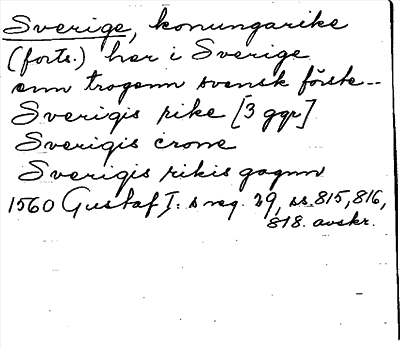 Sverige, konungarike
(forts.) här i Sverige
som trogenn svensk förste--
Sverigis rike [3 ggr]
Sverigis crone
Sverigis rikis gagnn
1560 Gustaf I:s reg. 29, ss. 815, 816,
818. avskr.